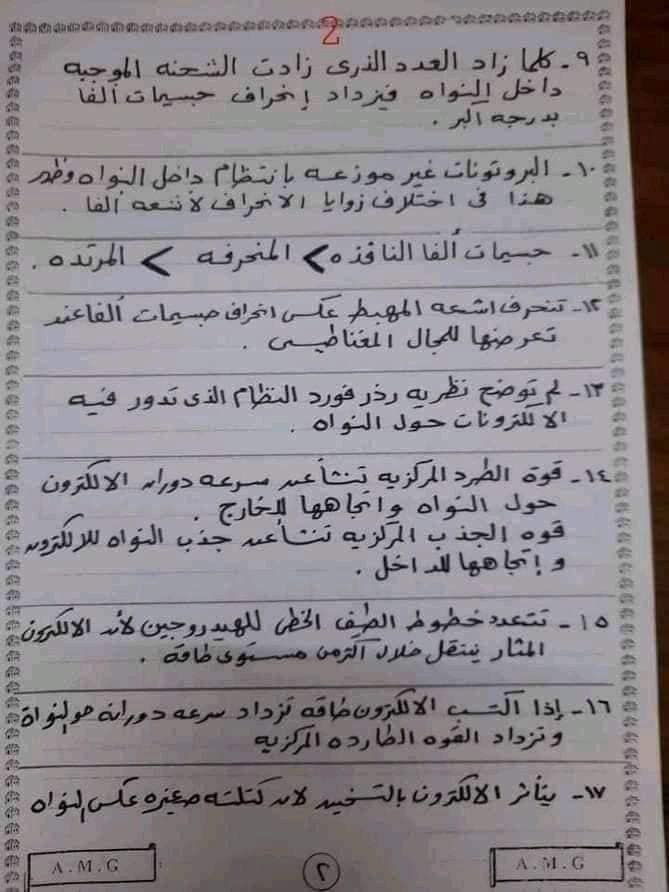 2
٩- كلما زاد العدد الذرى زادت الشحنه الموجبه
داخل النواه فيزداد إنحراف جسيمات ألفا
بدرجه أكبر .
١٠- البروتونات غير موزعه بانتظام داخل النواه وظهر
هذا فى اختلاف زوايا الانحراف لأشعه ألفا .
١١- جسيمات ألفا النافذه > المنحرفه > المرتده .
١٢- تنحرف اشعه المهبط عكس انحراف جسيمات ألفا عند
تعرضها للمجال المغناطيسى .
١٣- لم توضح نظريه رذرفورد النظام الذى تدور فيه
الالكترونات حول النواه .
١٤- قوة الطرد المركزيه تنشأ عن سرعه دوران الالكترون
حول النواه واتجاهها للخارج .
قوه الجذب المركزيه تنشأ عن جذب النواه للالكترون
و إتجاهها للداخل .
١٥- تتعدد خطوط الطيف الخطى للهيدروجين لأن الالكترون
المثار ينتقل خلال أكثر من مستوى طاقه .
١٦- إذا اكتسب الالكترون طاقه تزداد سرعه دورانه حول النواة
وتزداد القوه الطارده المركزيه
١٧- يتأثر الالكترون بالتسخين لان كتلته صغيره عكس النواه
A.M.G
٢
A.M.G